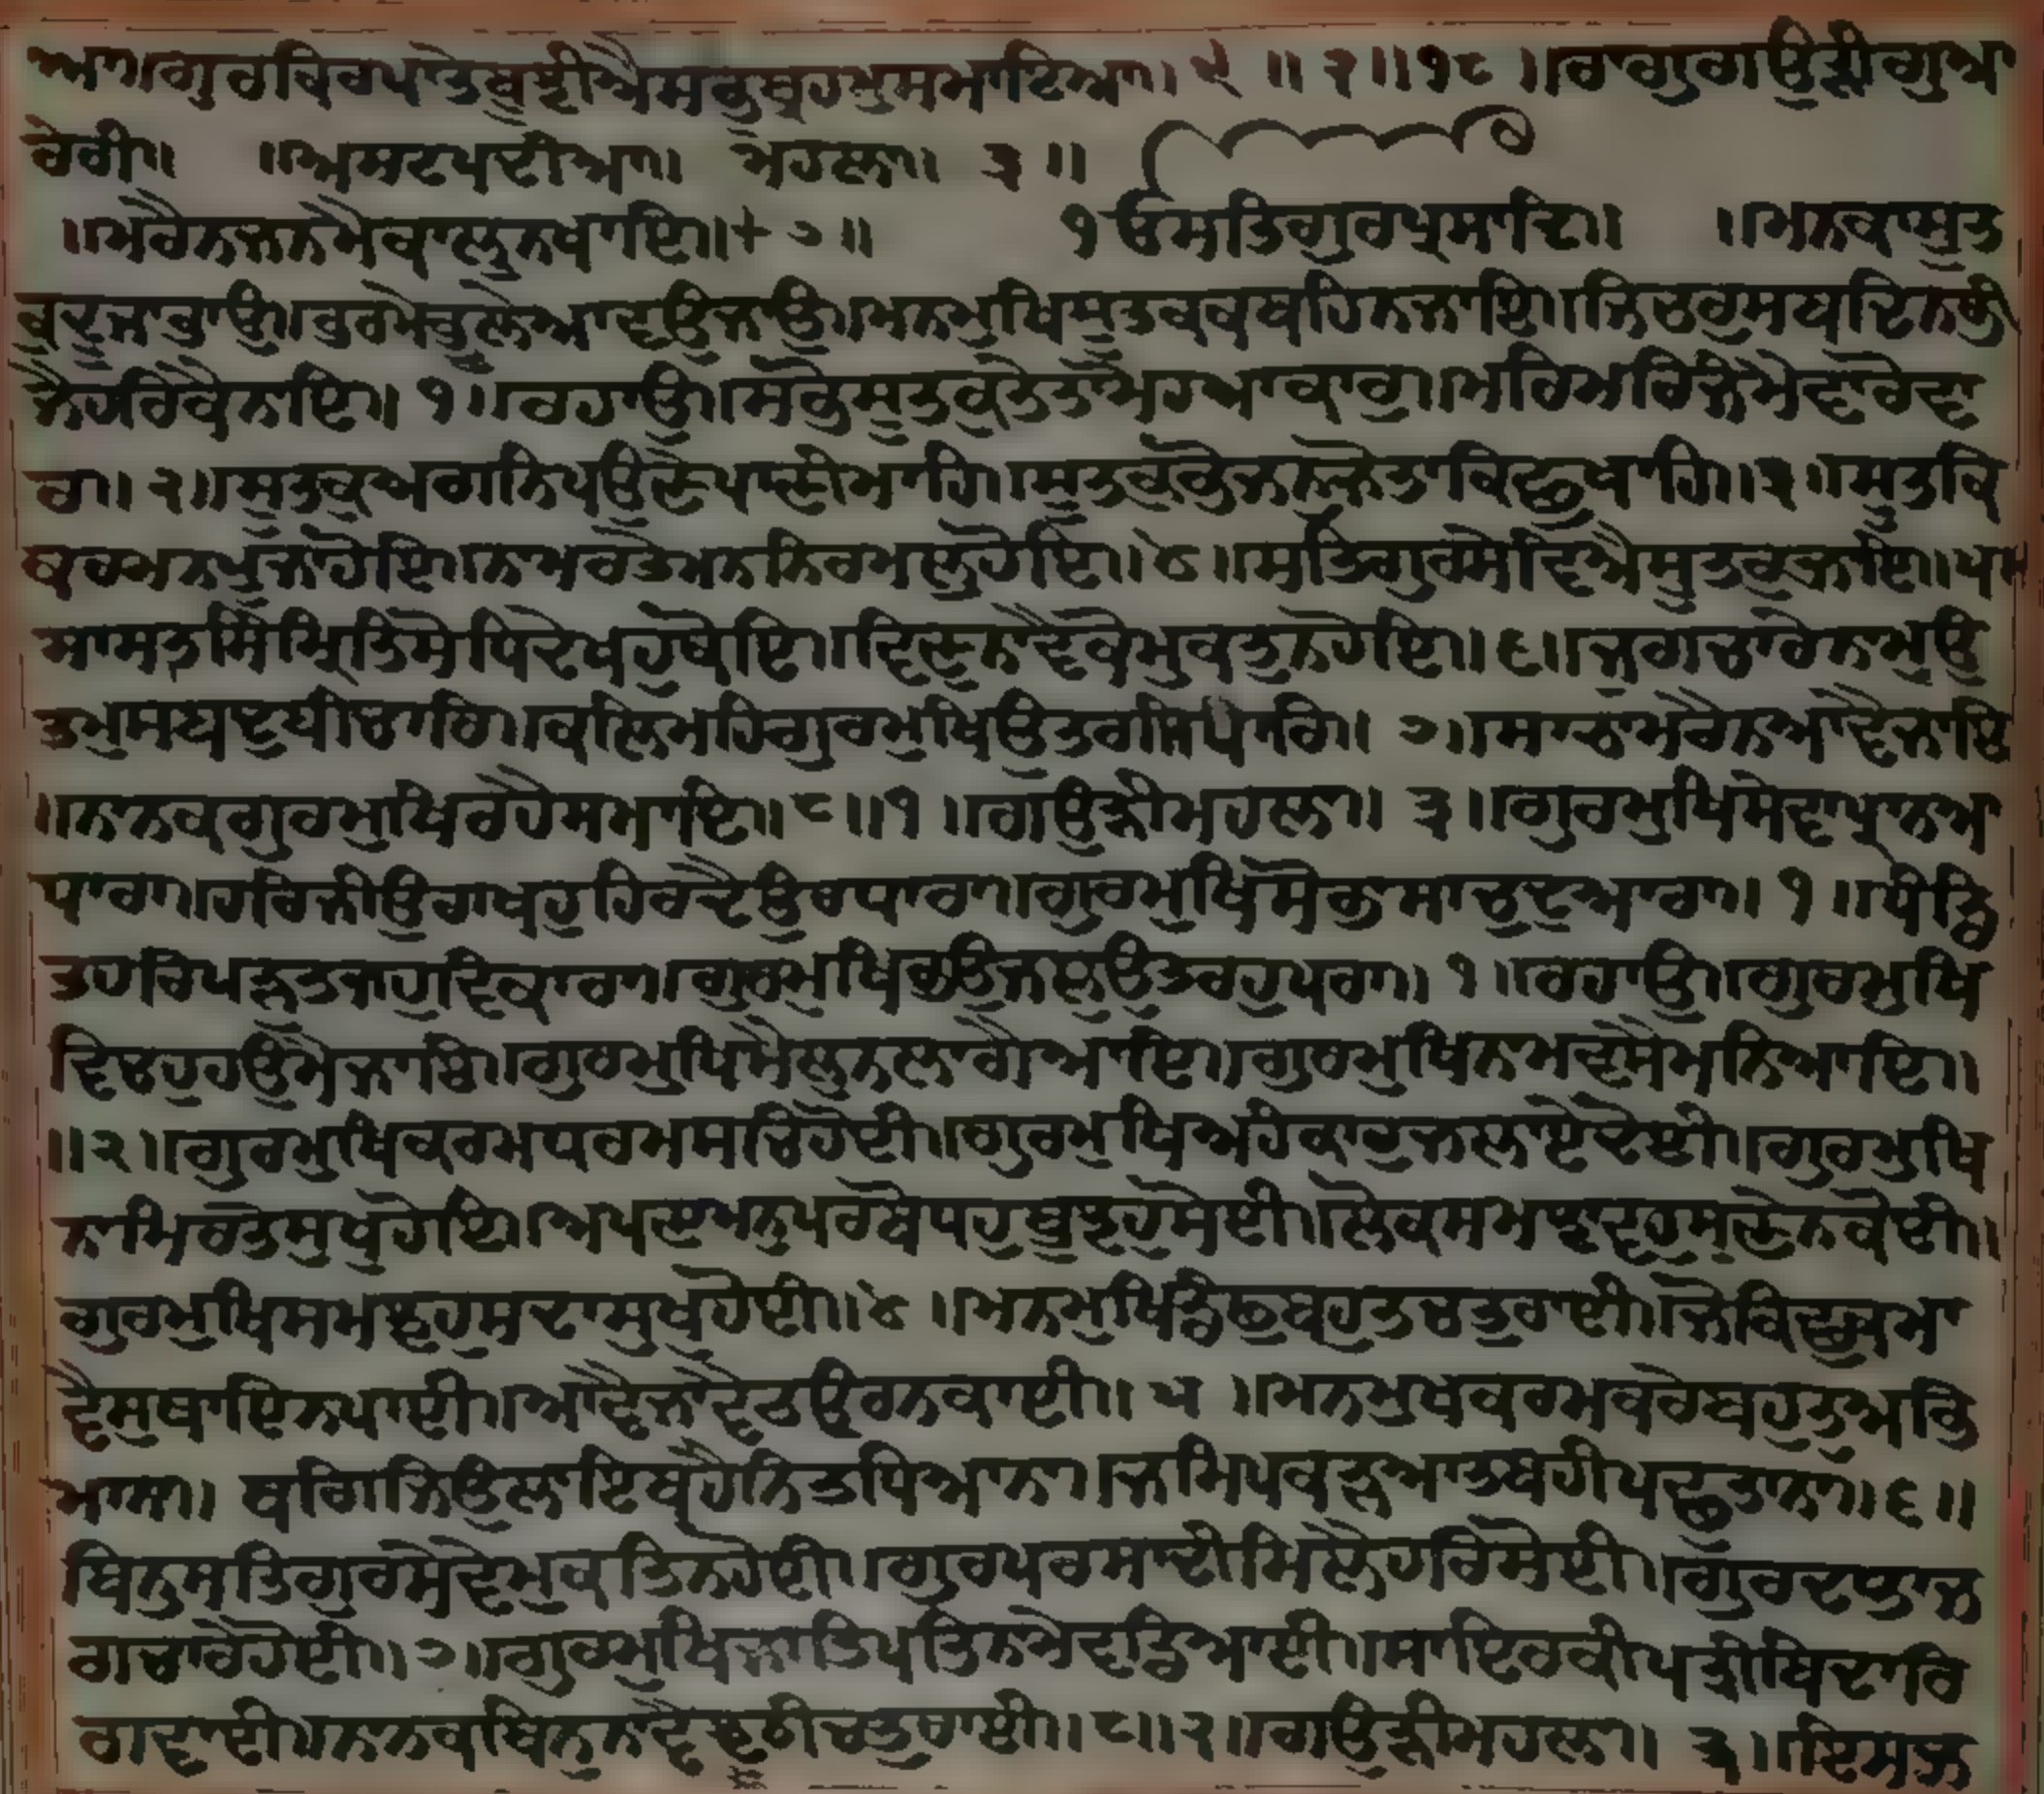 ਆ॥ਗੁਰਕਿਰਪਾਤੇਬੂਝੀਐਸਭੁਬ੍ਰਹਮੁਸਮਾਇਆ॥ ੯ ॥੨॥੧੮ ॥ਰਾਗੁਗਉੜੀਗੁਆ
ਰੇਰੀ॥ ॥ਅਸਟਪਦੀਆ॥ ਮਹਲਾ॥ ੩ ॥
॥ਮਰੈਨਜਨਮੈਕਾਲੁਨਖਾਇ॥੭॥ ੧ਓਸਤਿਗੁਰਪ੍ਰਸਾਦਿ॥ ॥ਮਨਕਾਸੂਤ
ਕੁਦੂਜਾਭਾਉ॥ਭਰਮੇਭੂਲੇਆਵਉਜਾਉ॥ਮਨਮੁਖਿਸੂਤਕਕਬਹਿਨਜਾਇ॥ਜਿਚਰੁਸਬਦਿਨਭੀ
ਜੈਹਰਿਕੈਨਾਇ॥ ੧॥ਰਹਾਉ॥ਸਭੋਸੂਤਕੁਜੇਤਾਮੋਹੁਆਕਾਰੁ॥ਮਰਿਮਰਿਜੰਮੈਵਾਰੋਵਾ
ਰ॥ ੨॥ਸੂਤਕੁਅਗਨਿਪਉਣੈਪਾਣੀਮਾਹਿ॥ਸੂਤਕੁਭੋਜਨੁਜੇਤਾਕਿਛੁਖਾਹਿ॥੩॥ਸੂਤਕਿ
ਕਰਮਨਪੂਜਾਹੋਇ॥ਨਾਮਰਤੇਮਨਨਿਰਮਲੁਹੋਇ॥੪॥ਸਤਿਗੁਰਸੇਵਿਐਸੂਤਕੁਜਾਇ॥੫ਸ
ਸਾਸਤਸਿੰਮ੍ਰਿਤਿਸੋਧਿਦੇਖਹੁਕੋਇ॥ਵਿਣੁਨਾਵੈਕੋਮੁਕਤੁਨਹੋਇ॥੬॥ਜੁਗਚਾਰੇਨਾਮੁਉ
ਤਮੁਸਬਦੁਬੀਚਾਰਿ॥ਕਲਿਮਹਿਗੁਰਮੁਖਿਉਤਰਸਿਪਾਰਿ॥ ੭॥ਸਾਚਾਮਰੈਨਆਵੈਜਾਇ
॥ਨਾਨਕਗੁਰਮੁਖਿਰਹੈਸਮਾਇ॥੮॥੧ ॥ਗਉੜੀਮਹਲਾ॥ ੩॥ਗੁਰਮੁਖਿਸੇਵਾਪ੍ਰਾਨਅ
ਧਾਰਾ॥ਹਰਿਜੀਉਰਾਖਹੁਹਿਰਦੈਉਰਧਾਰਾ॥ਗੁਰਮੁਖਿਸੋਭਾਸਾਚਦੁਆਰਾ॥ ੧ ॥ਪੰਡਿ
ਤਹਰਿਪੜੁਤਜਹੁਵਿਕਾਰਾ॥ਗੁਰਮੁਖਿਭਉਜਲੁਉਤਰਹੁਪਾਰਾ॥ ੧॥ਰਹਾਉ॥ਗੁਰਮੁਖਿ
ਵਿਚਹੁਹਉਮੈਜਾਇ॥ਗੁਰਮੁਖਿਮੈਲੁਨਲਾਗੈਆਇ॥ਗੁਰਮੁਖਿਨਾਮਵਸੈਮਨਿਆਇ॥
॥੨॥ਗੁਰਮੁਖਿਕਰਮਧਰਮਸਚਿਹੋਈ॥ਗੁਰਮੁਖਿਅਹੰਕਾਰੁਜਲਾਏਦੋਈ॥ਗੁਰਮੁਖਿ
ਨਾਮਿਰਤੇਸੁਖੁਹੋਇ॥ਆਪਣਾਮਨੁਪਰਬੋਧਹੁਬੂਝਹੁਸੋਈ॥ਲੋਕਸਮਝਾਵਹੁਸੁਣੇਨਕੋਈ॥
ਗੁਰਮੁਖਿਸਮਝਹੁਸਦਾਸੁਖੁਹੋਈ॥੪ ॥ਮਨਮੁਖਿਡੰਫੁਬਹੁਤੁਚਤੁਰਾਈ॥ਜੋਕਿਛੁਕਮਾ
ਵੈਸੁਥਾਇਨਪਾਈ॥ਆਵੈਜਾਵੈਠਉਰਨਕਾਈ॥ ੫ ॥ਮਨਮੁਖਕਰਮਕਰੇਬਹੁਤੁਅਭਿ
ਮਾਨਾ॥ ਬਗਜਿਉਲਾਇਬਹੈਨਿਤਧਿਆਨਾ॥ਜਮਿਪਕੜਆਤਬਹੀਪਛੁਤਾਨਾ॥੬॥
ਬਿਨੁਸਤਿਗੁਰਸੇਵੇਮੁਕਤਿਨਹੋਈ॥ਗੁਰਪਰਸਾਦੀਮਿਲੈਹਰਿਸੋਈ॥ਗੁਰਦਾਤਾਜੁ
ਗਚਾਰੇਹੋਈ॥੭॥ਗੁਰਮੁਖਿਜਾਤਿਪਤਿਨਾਮੇਵਡਿਆਈ॥ਸਾਇਰਕੀਪੁਤ੍ਰੀਬਿਦਾਰਿ
ਗਵਾਈ॥ਨਾਨਕਬਿਨੁਨਾਵੈਝੂਠੀਚਤੁਰਾਈ॥੮॥੨॥ਗਉੜੀਮਹਲਾ॥ ੩॥ਇਸੁਜੁ